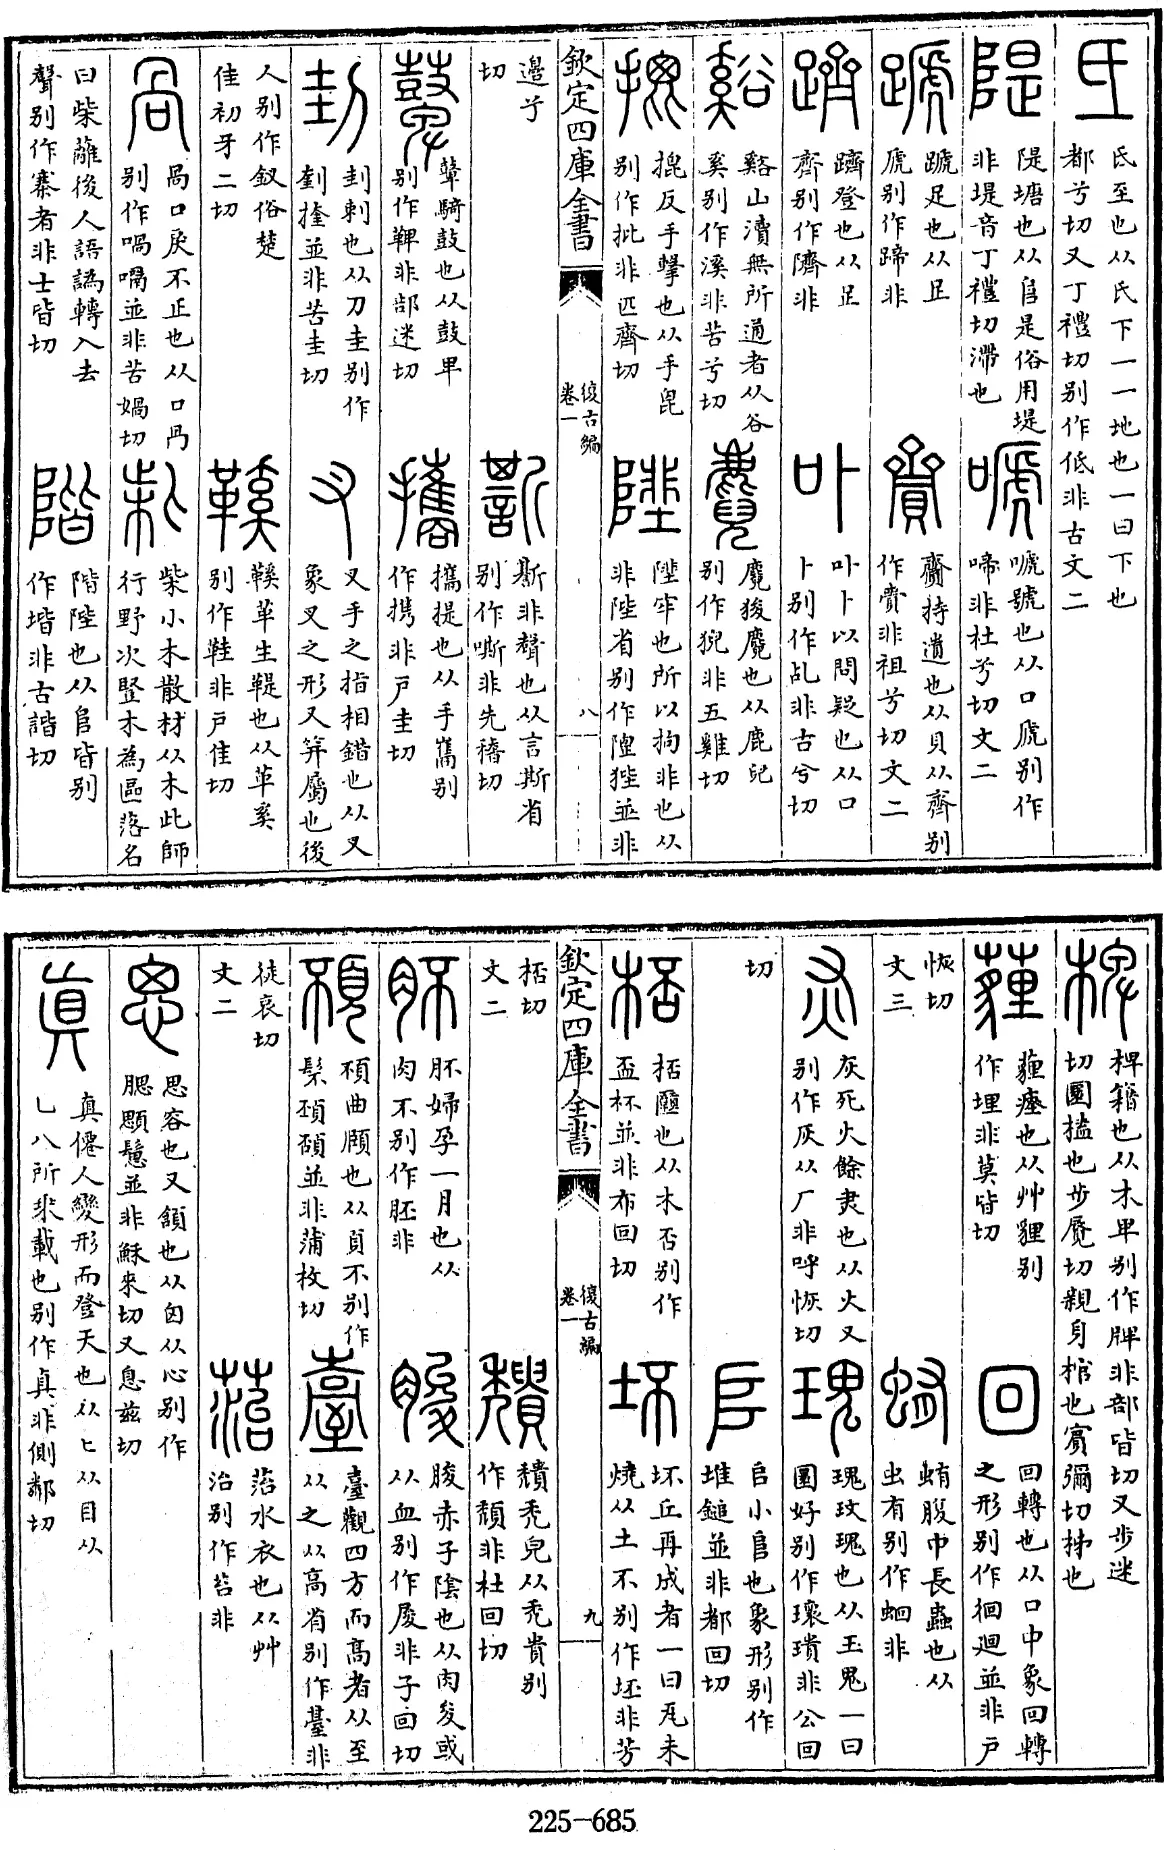 氐
氐至也从氏下一一地也一曰下也
都兮切又丁禮切别作低非古文二
隄
隄塘也从𨸏是俗用堤
非堤音丁禮切滯也
嗁
嗁號也从口虒别作
啼非杜兮切文二
蹏
蹏足也从足
虒别作蹄非
齎
齎持遺也从貝从齊别
作賷非祖兮切文二
躋
躋登也从足
齊别作隮非
卟
卟卜以問疑也从口
卜别作乩非古兮切
谿
谿山瀆無所通者从谷
奚别作溪非苦兮切
麑
麑狻麑也从鹿兒
别作猊非五雞切
反手擊也从手毘
别作批非匹齊切
陛
陛牢也所以拘非也从
非陛省别作狴並非
欽定四庫全書
復古編
卷一
八
邊兮
切
斯非聲也从言斯省
别作嘶非先稽切
鼙
鼙騎鼓也从鼓卑
别作鞞非部迷切
攜
攜提也从手巂别
作携非戸圭切
刲
刲刺也从刀圭别作
並非苦圭切
叉
叉手之指相錯也从又
象叉之形又笄屬也後
人别作釵俗楚
佳初牙二切
鞵
鞵革生鞮也从革奚
别作鞋非戸佳切
咼
咼口戾不正也从口冎
别作喎㗏並非苦媧切
柴
柴小木散材从木此師
行野次豎木為區落名
曰柴蘺後人語譌轉入去
聲别作寨者非士皆切
階
階陛也从𨸏皆别
作堦非古諧切
椑
椑籍也从木卑别作牌非部皆切又步迷
切圜榼也步歷切親身棺也賓彌切柹也
薶
薶瘞也从艸貍别
作埋非莫皆切
回
回轉也从口中象回轉
之形别作徊迴並非戸
恢切
文三
蛕
蛕腹中長蟲也从
虫有别作蛔非
灰
灰死火餘㶳也从火又
别作灰从厂非呼恢切
瑰
瑰玟瑰也从玉鬼一曰
圜好别作瓌璝非公回
切
𠂤
𠂤小𨸏也象形别作
堆鎚並非都回切
桮
桮㔶也从木否别作
盃杯並非布回切
坏
坏丘再成者一曰瓦未
燒从土不别作坯非芳
欽定四庫全書
復古編
卷一
九
桮切
文二
穨
穨禿皃从禿貴别
作頹非杜回切
肧
肧婦孕一月也从
肉不别作胚非
朘
朘赤子陰也从肉夋或
从血别作㞞非子回切
頄
曲頤也从頁不别作
並非蒲枚切
臺
臺觀四方而髙者从至
从之从高省别作薹非
徒哀切
文二
菭
菭水衣也从艸
治别作苔非
思
思容也又頷也从囟从心别作
腮顋鬛並非穌來切又息兹切
眞
真僊人變形而登天也从匕从目从
乚八所乗載也别作真非側鄰切
225-685